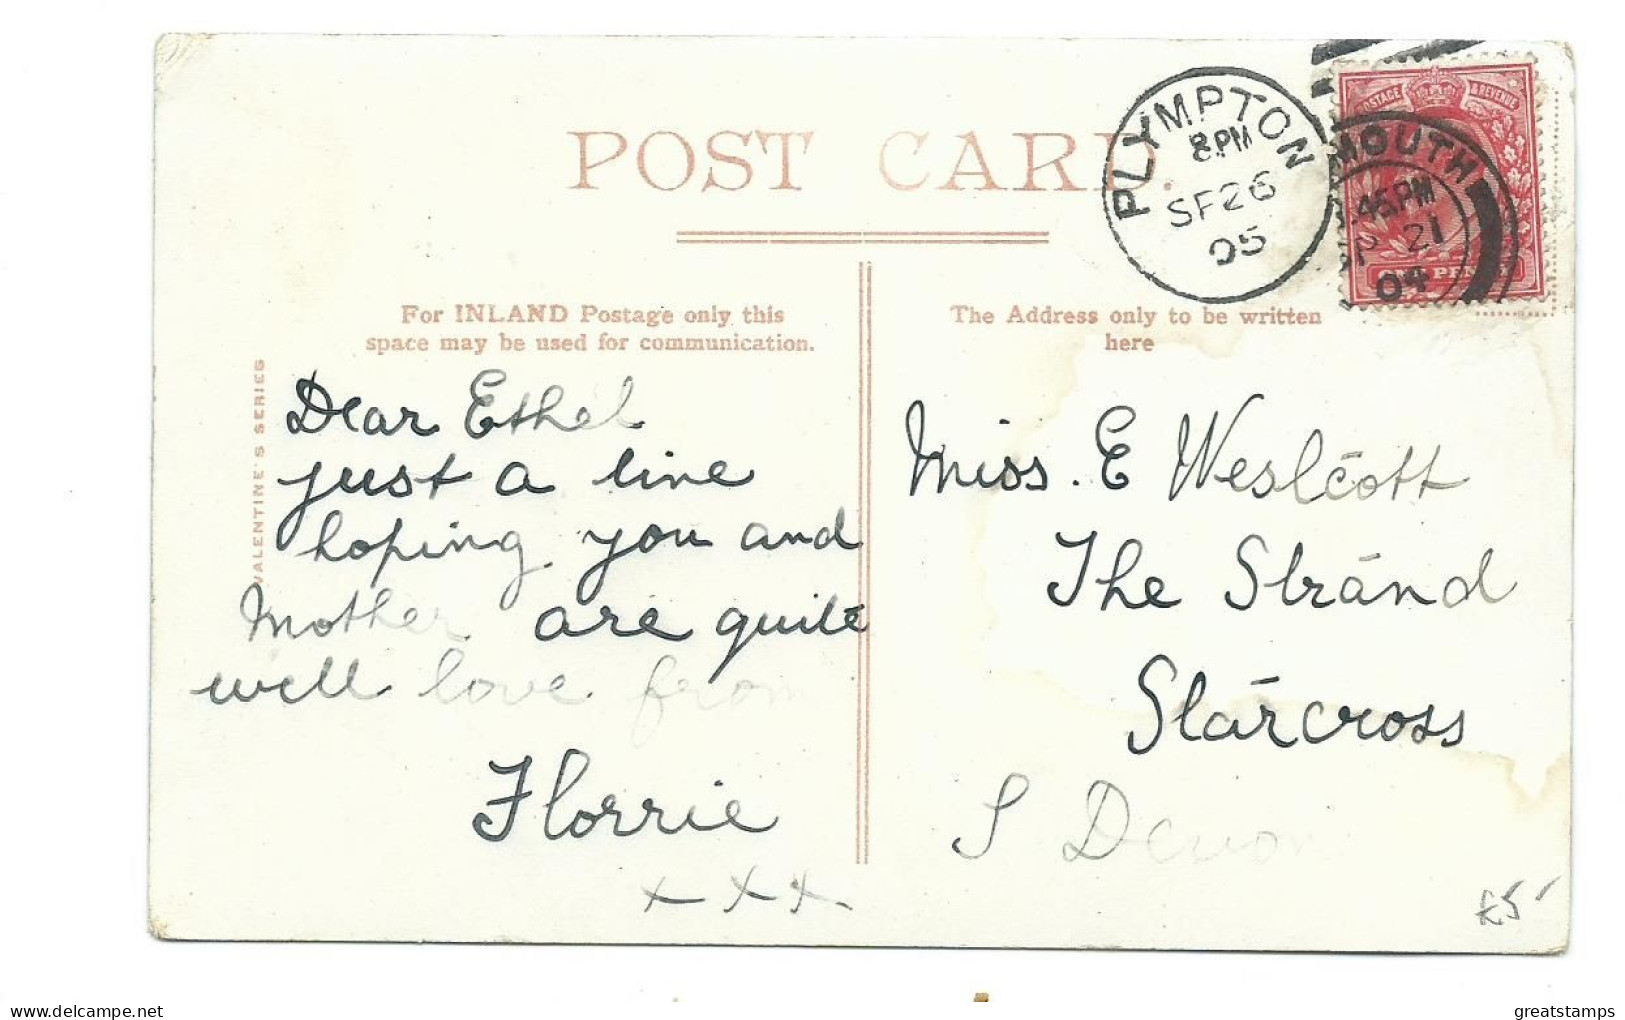 POST CARD.
PLYMPTON
8.PM
SP 26
05
POSTAGE & REVENUE
MOUTH
.45.PM
P 21
04
For INLAND Postage only this
space may be used for communication.
The Address only to be written
here
VALENTINE'S SERIES
Dear Ethel
just a line
hoping you and
Mother are quite
well love from
Florrie
x x x
Miss. E Westcott
The Strand
Starcross
S Devon
£5
greatstamps